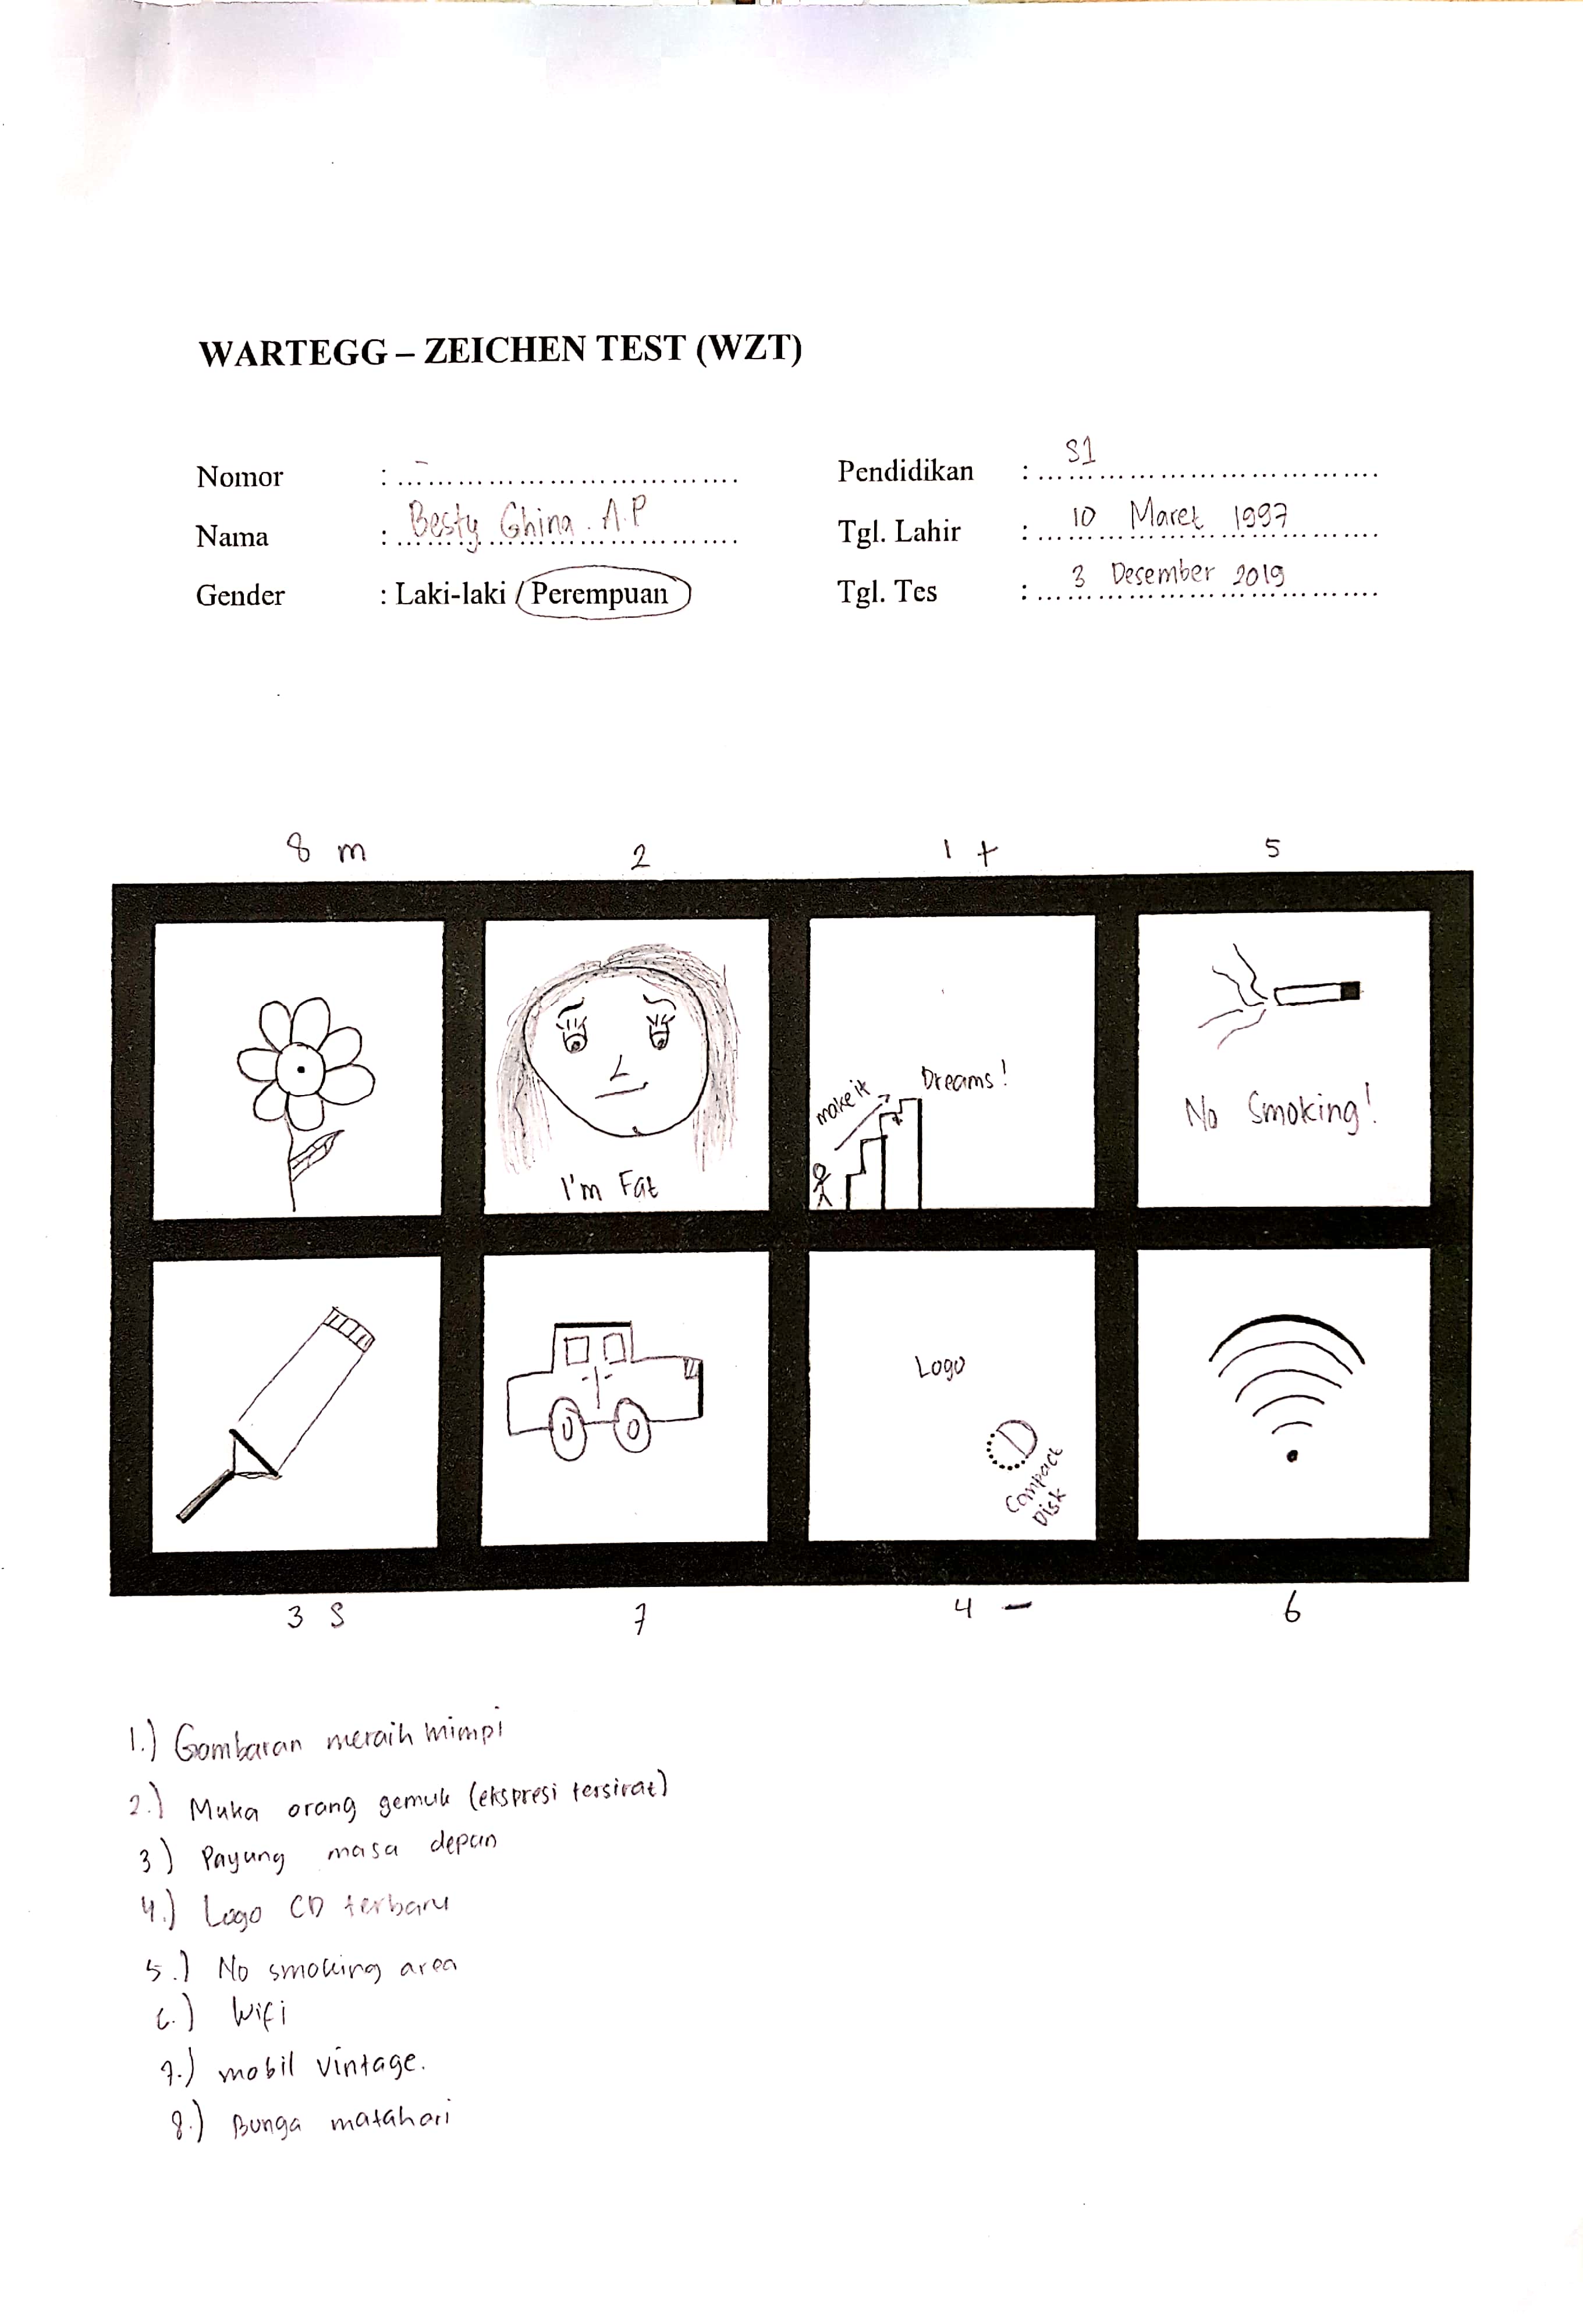 WARTEGG – ZEICHEN TEST (WZT)
Nomor : -
Nama : Besty Ghina. A.P
Gender : Laki-laki / Perempuan
Pendidikan : S1
Tgl. Lahir : 10 Maret 1997
Tgl. Tes : 3 Desember 2019
8 m 2 1 + 5
I'm Fat
make it
Dreams!
No Smoking!
Logo
CD
Compact
Disk
3 S 7 4 - 6
1.) Gambaran meraih mimpi
2.) Muka orang gemuk (ekspresi tersirat)
3) Payung masa depan
4.) Logo CD terbaru
5.) No smoking area
6.) Wifi
7.) mobil vintage.
8.) Bunga matahari